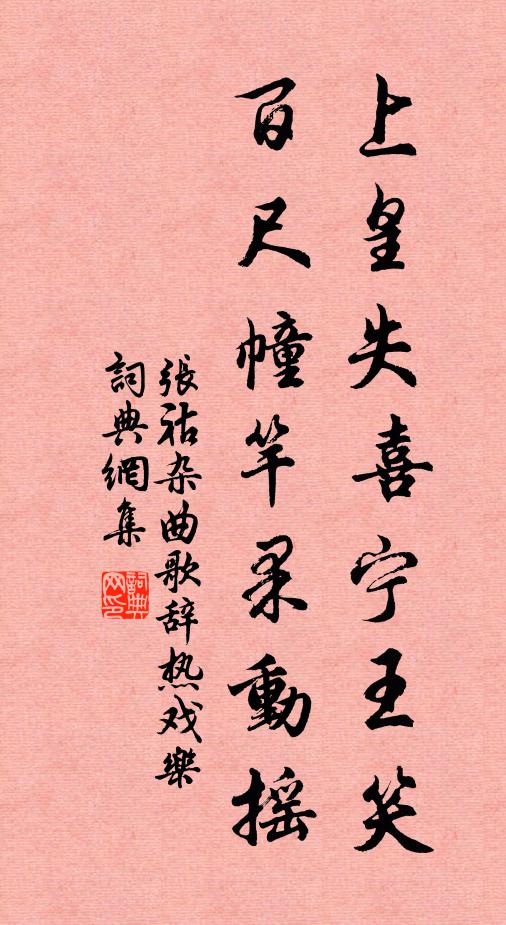 上皇失喜宁王笑
百尺幢竿果動摇
張祜杂曲歌辞热戏樂
詞典網集
詞典网印